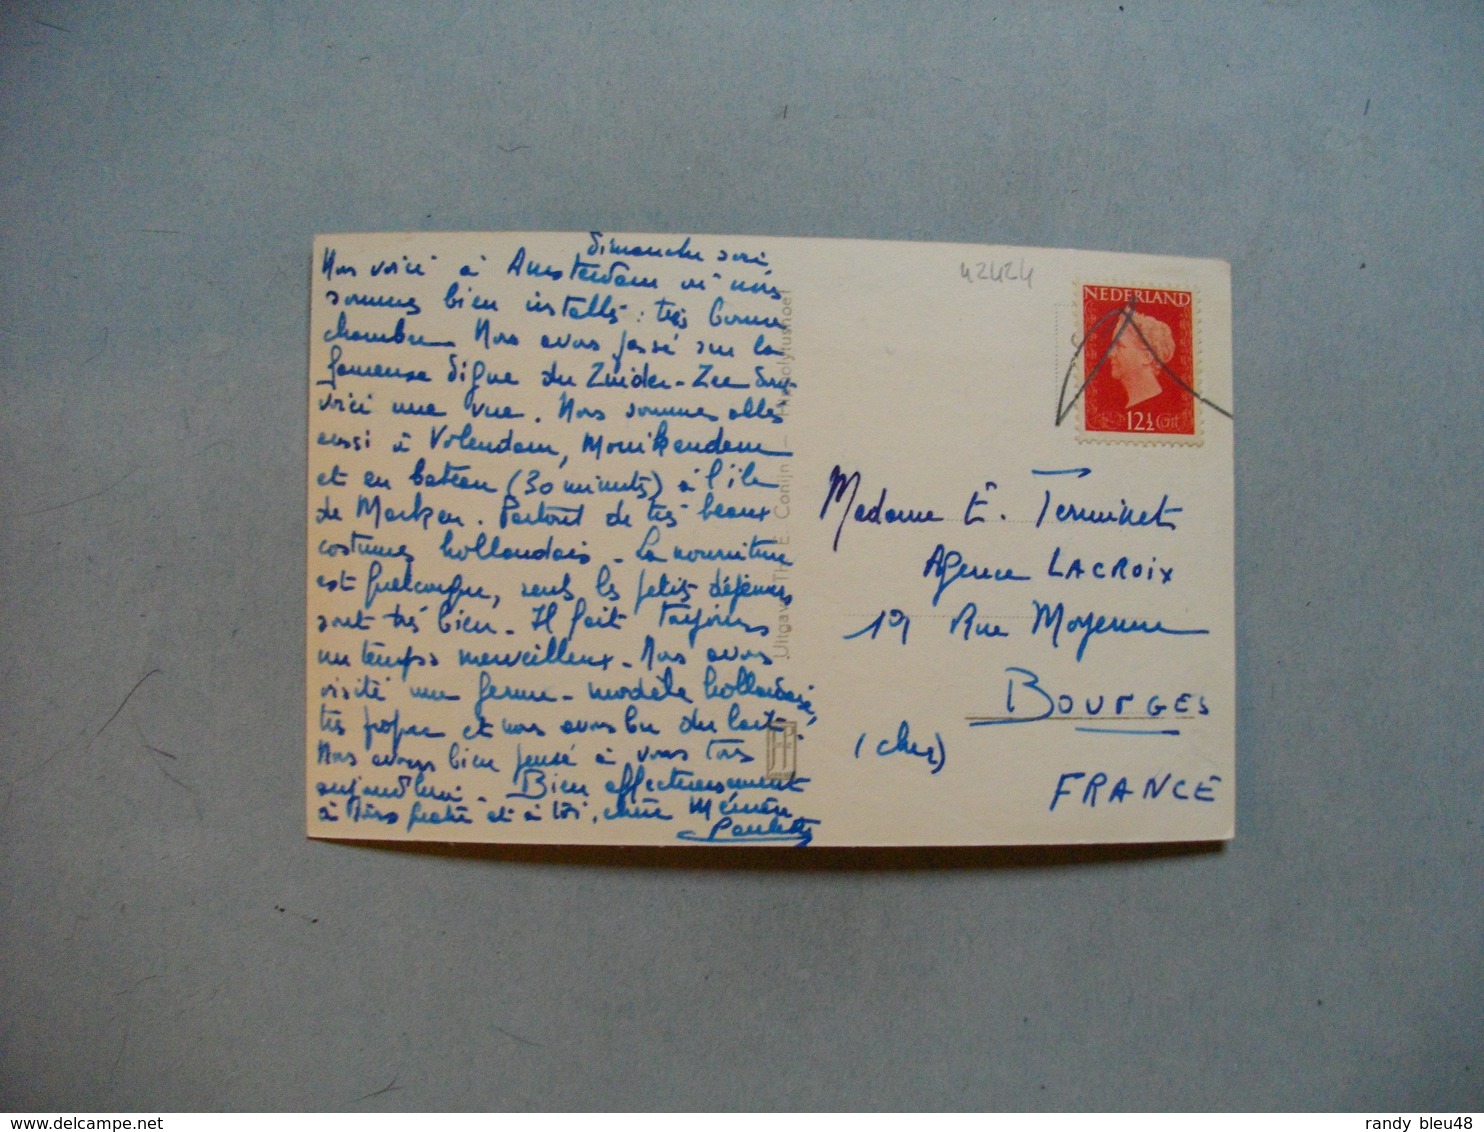 Dimanche soir,
Nous voici à Amsterdam où nous
sommes bien installés : très bonne
chambre. Nous avons passé sur la
fameuse digue du Zuider-Zee dont
voici une vue. Nous sommes allés
aussi à Volendam, Monikendam
et en bateau (30 minutes) à l'île
de Marken. Partout de très beaux
costumes hollandais. La nourriture
est quelconque, seuls les petits déjeuners
sont très bien. Il fait toujours
un temps merveilleux. Nous avons
visité une ferme-modèle hollandaise,
très propre et nous avons bu du lait.
Nous avons bien pensé à vous tous
aujourd'hui. Bien affectueusement
à et à toi, chère Mémère
Paulette
Uitgave TH. E. Conijn –
42424
NEDERLAND
12½ CT
Madame E. Terminet
Agence LACROIX
19 Rue Moyenne
BOURGES
(Cher)
FRANCE
randy_bleu48